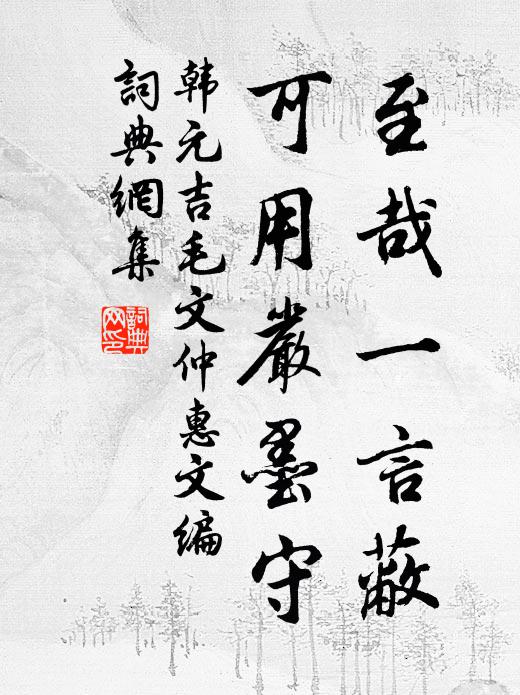 至哉一言蔽
可用嚴墨守
韩元吉毛文仲惠文编
詞典網集
詞典網印